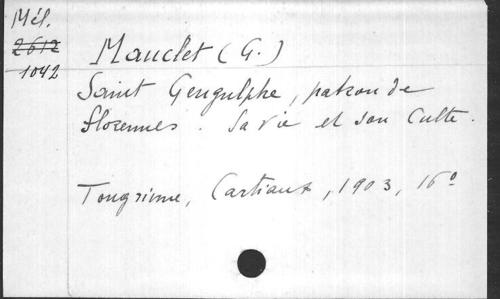 Mél.
2612
1042
Mauclet (G.)
Saint Gengulphe, patron de
Florennes. Sa vie et son Culte.
Tongrinne, Cartiaux, 1903, 16°